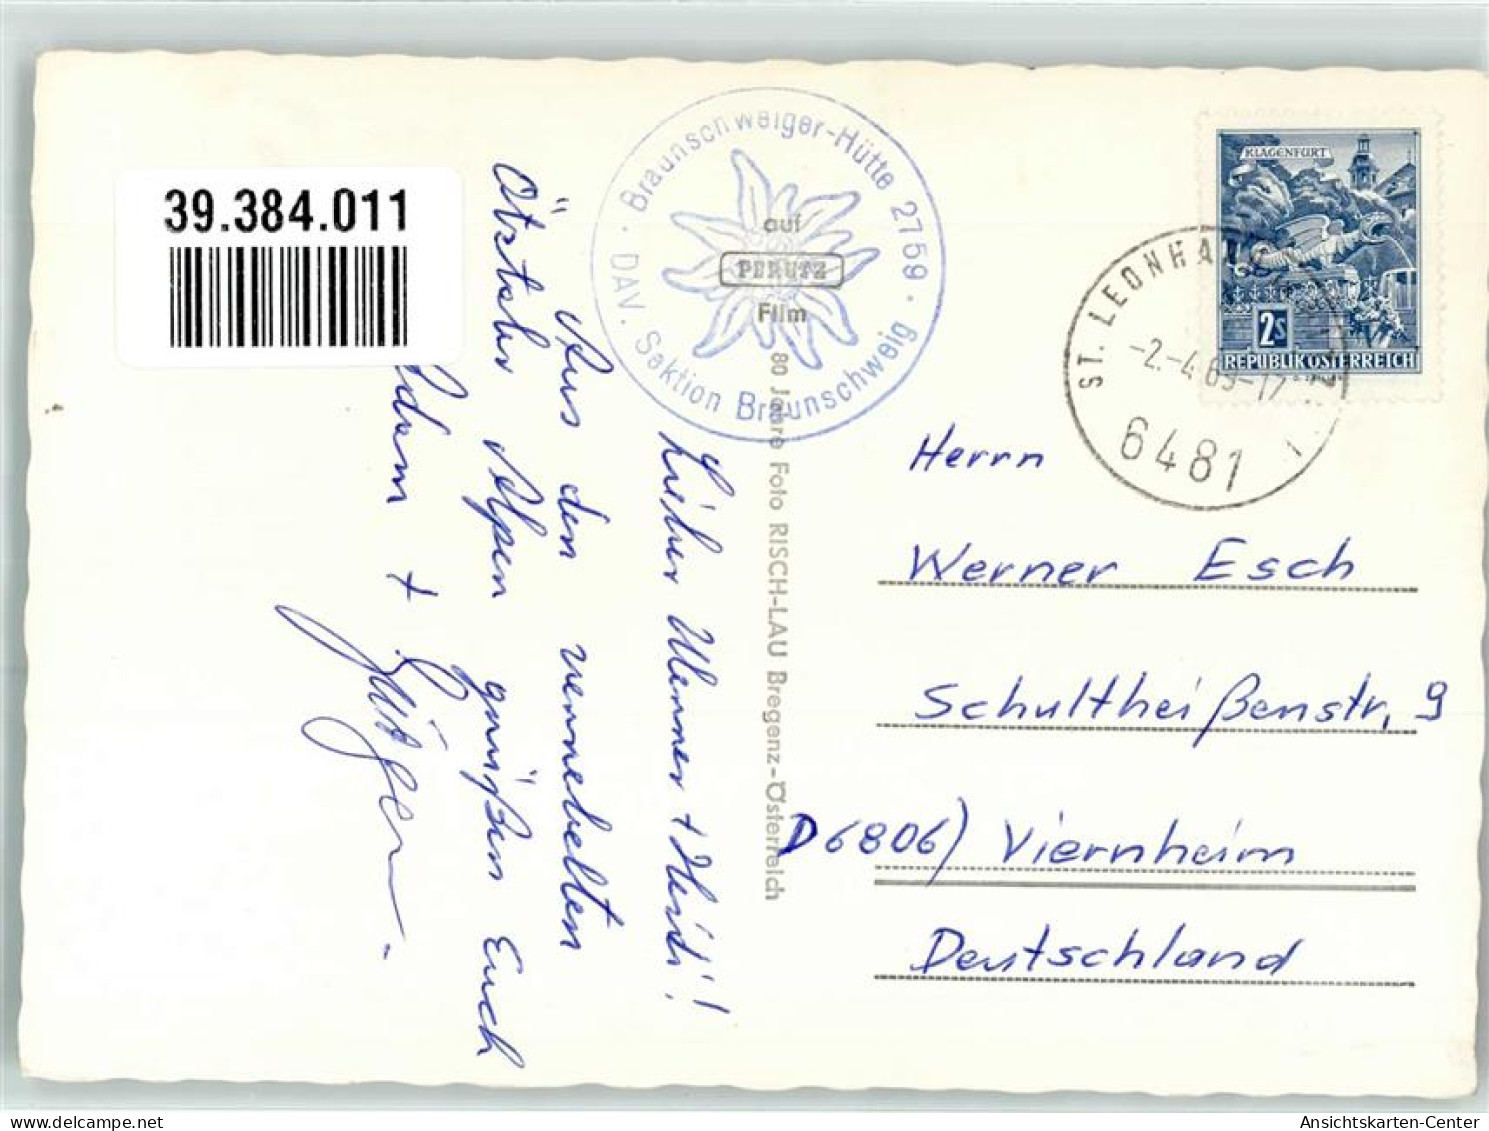 39.384.011
Braunschweiger-Hütte 2759
DAV. Sektion Braunschweig
auf
PERUTZ
Film
80 Jahre Foto RISCH-LAU Bregenz-Österreich
KLAGENFURT
2S
REPUBLIK ÖSTERREICH
ST. LEONHA
-2.-4.69-17
6481
Lieber Werner + Heidi!
Aus den vernebelten
Ötztaler Alpen grüßen Euch
+ Jürgen.
Herrn
Werner Esch
Schultheißenstr. 9
D6806) Viernheim
Deutschland
Ansichtskarten-Center